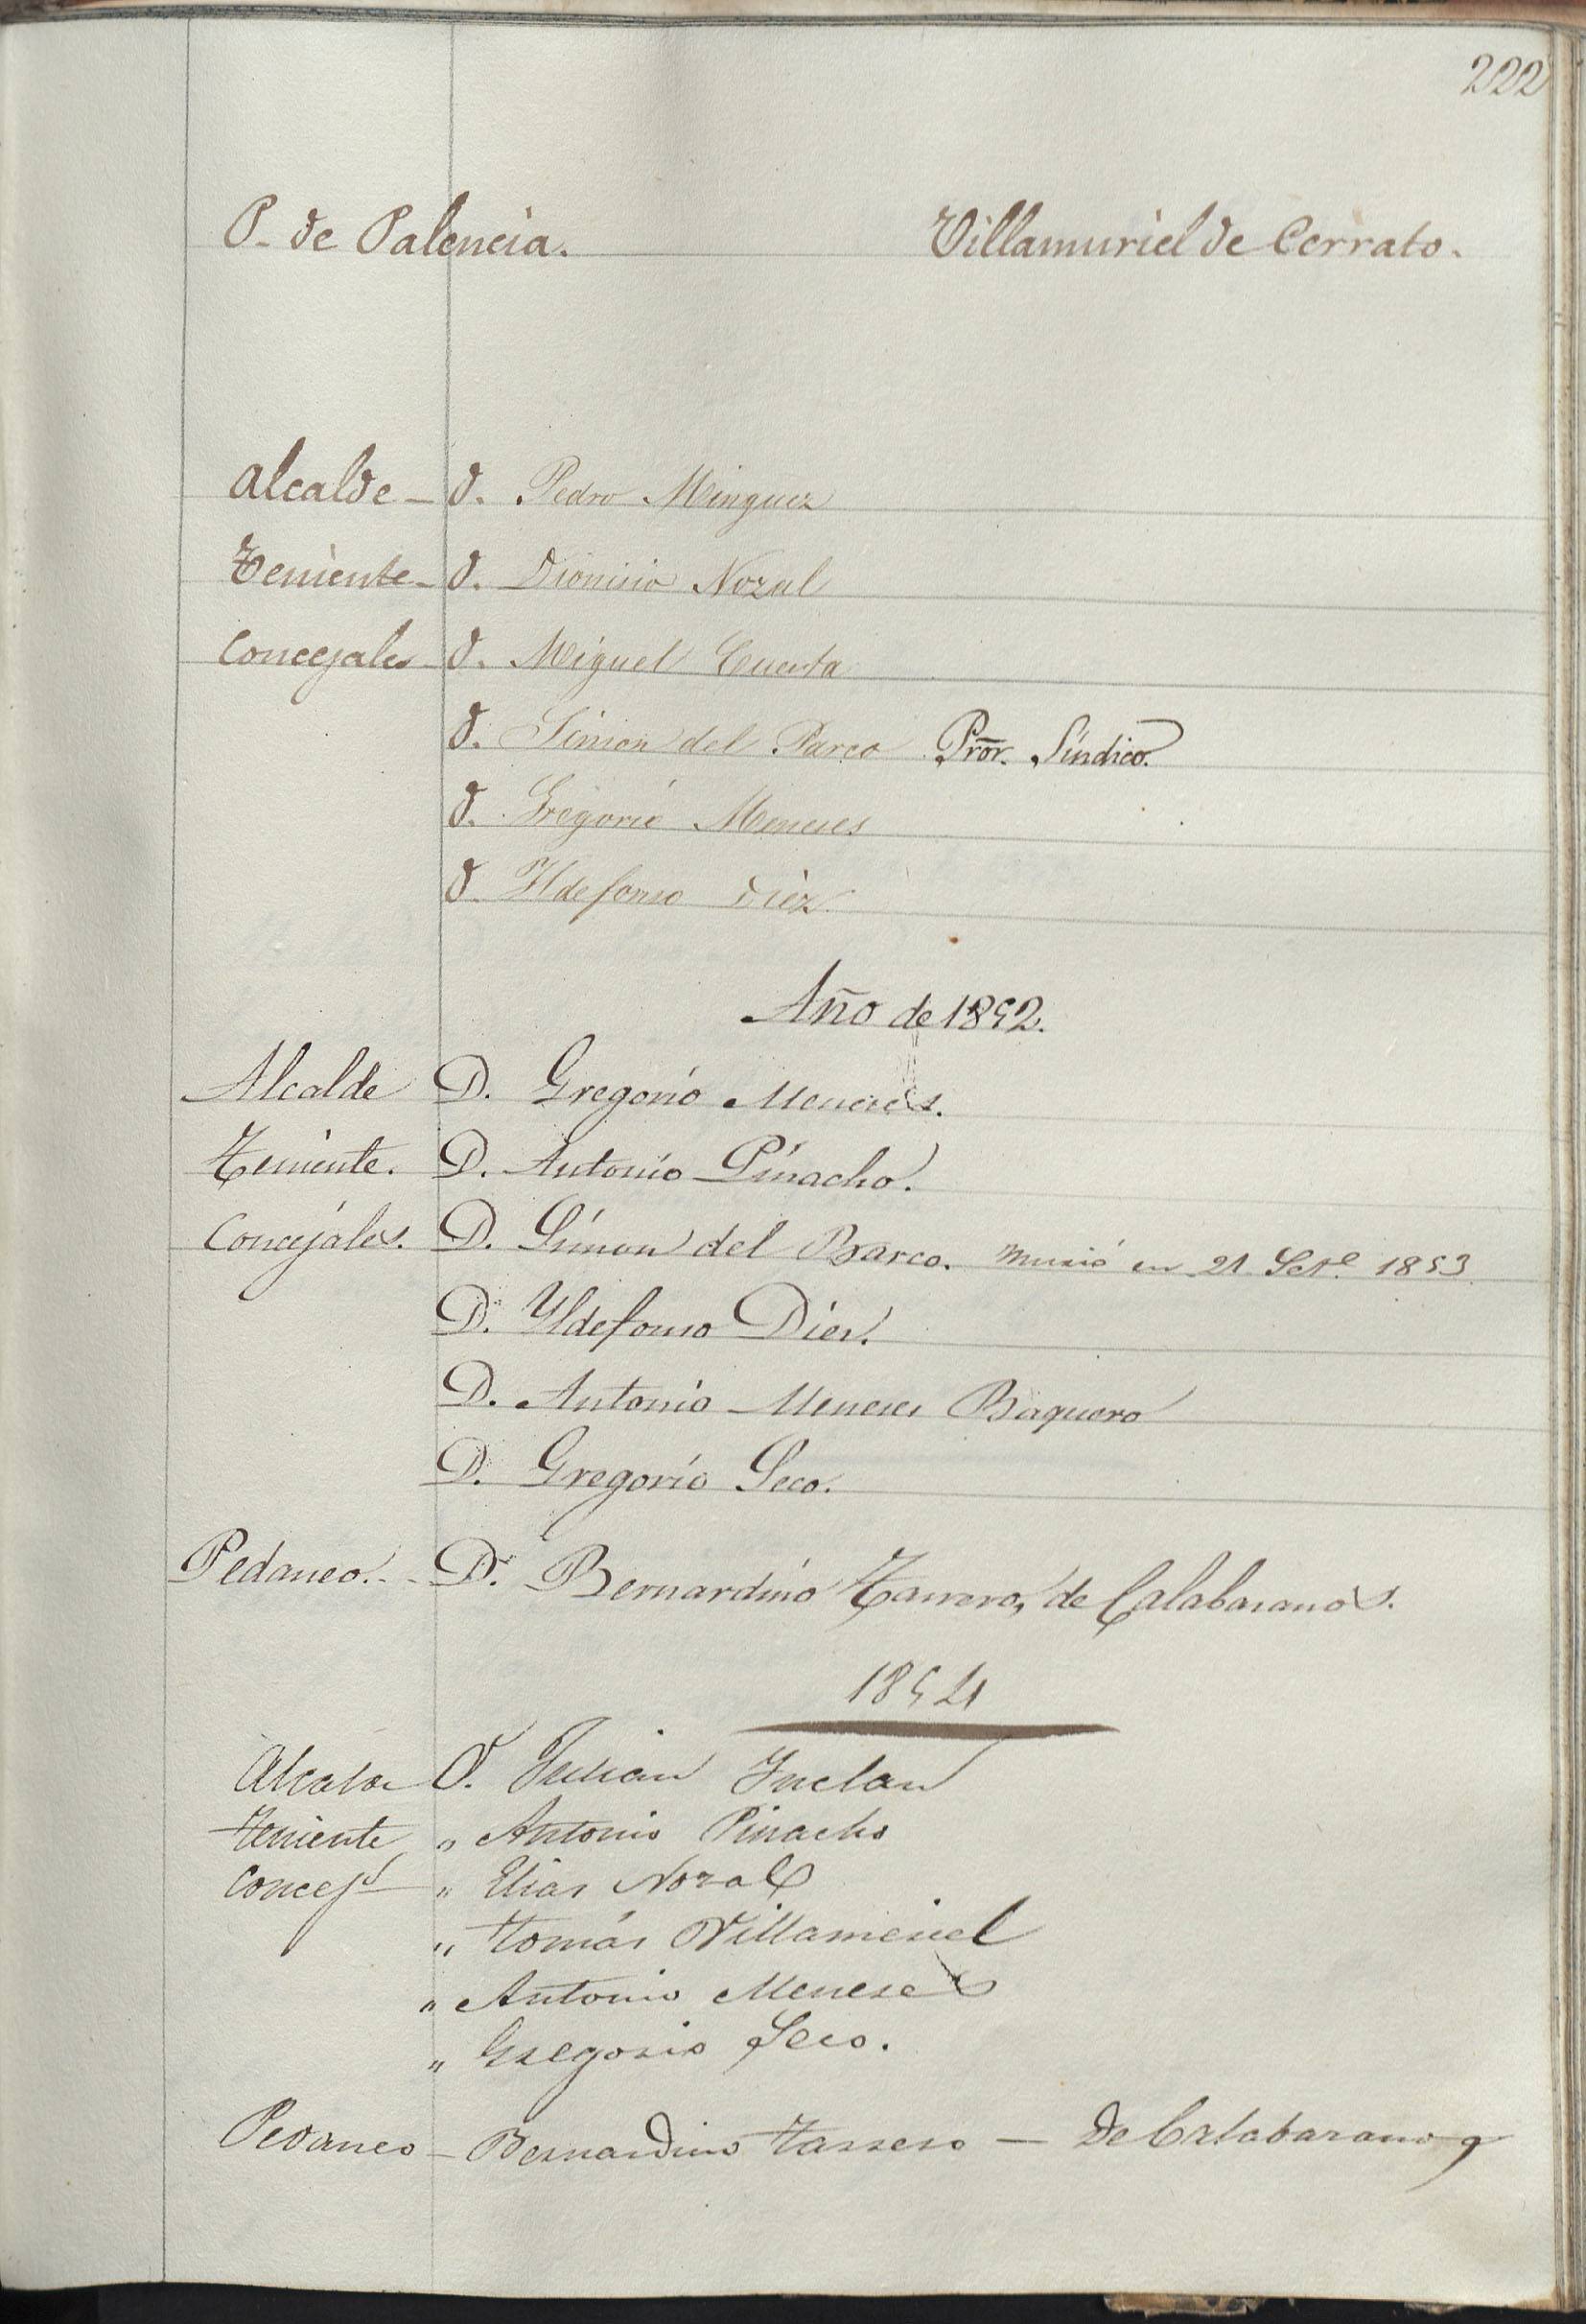 222
P. de Palencia. Villamuriel de Cerrato.
Alcalde - D. Pedro Minguez
Teniente - D. Dionisio Nozal
Concejales D. Miguel Cuesta
D. Simon del Barco Pror. Síndico.
D. Gregorio Meneses
D. Ildefonso Diez
Año de 1852.
Alcalde D. Gregorio Meneses.
Teniente. D. Antonio Pinacho.
Concejales. D. Simon del Barco. Murió en 21 Set.e 1853
D. Yldefonso Diez.
D. Antonio Meneses Baquero
D. Gregorio Seco.
Pedaneo. - - D. Bernardino Tarrero, de Calabazanos.
1854
Alcalde D. Julian Inclan
Teniente " Antonio Pinacho
Concej.s " Elias Nozal
" Tomás Villameriel
" Antonio Meneses
" Gregorio Seco.
Pedaneo - Bernardino Tarrero — De Calabazanos